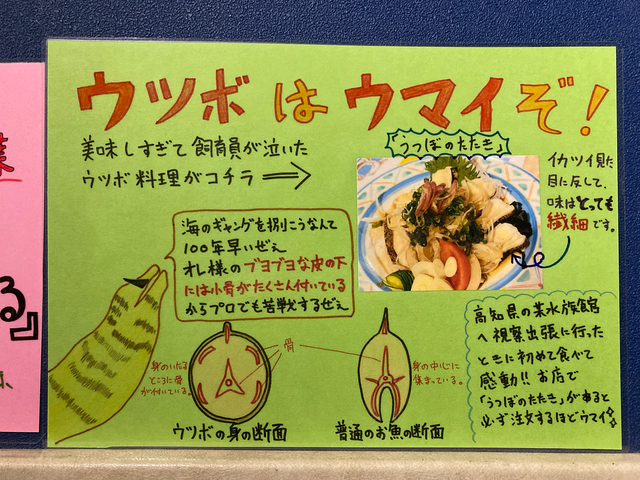 ウツボはウマイぞ!
美味しすぎて飼育員が泣いた
ウツボ料理がコチラ
「うつぼのたたき」
イカツイ見た
目に反して、
味はとっても
繊細です。
海のギャングを捌こうなんて
100年早いぜぇ
オレ様のブヨブヨな皮の下
には小骨がたくさん付いている
からプロでも苦戦するぜぇ
身のいたる
ところに骨
が付いている。
骨
身の中心に
集まっている。
ウツボの身の断面
普通のお魚の断面
高知県の某水族館
へ視察出張に行った
ときに初めて食べて
感動!!お店で
「うつぼのたたき」があると
必ず注文するほどウマイ
る』